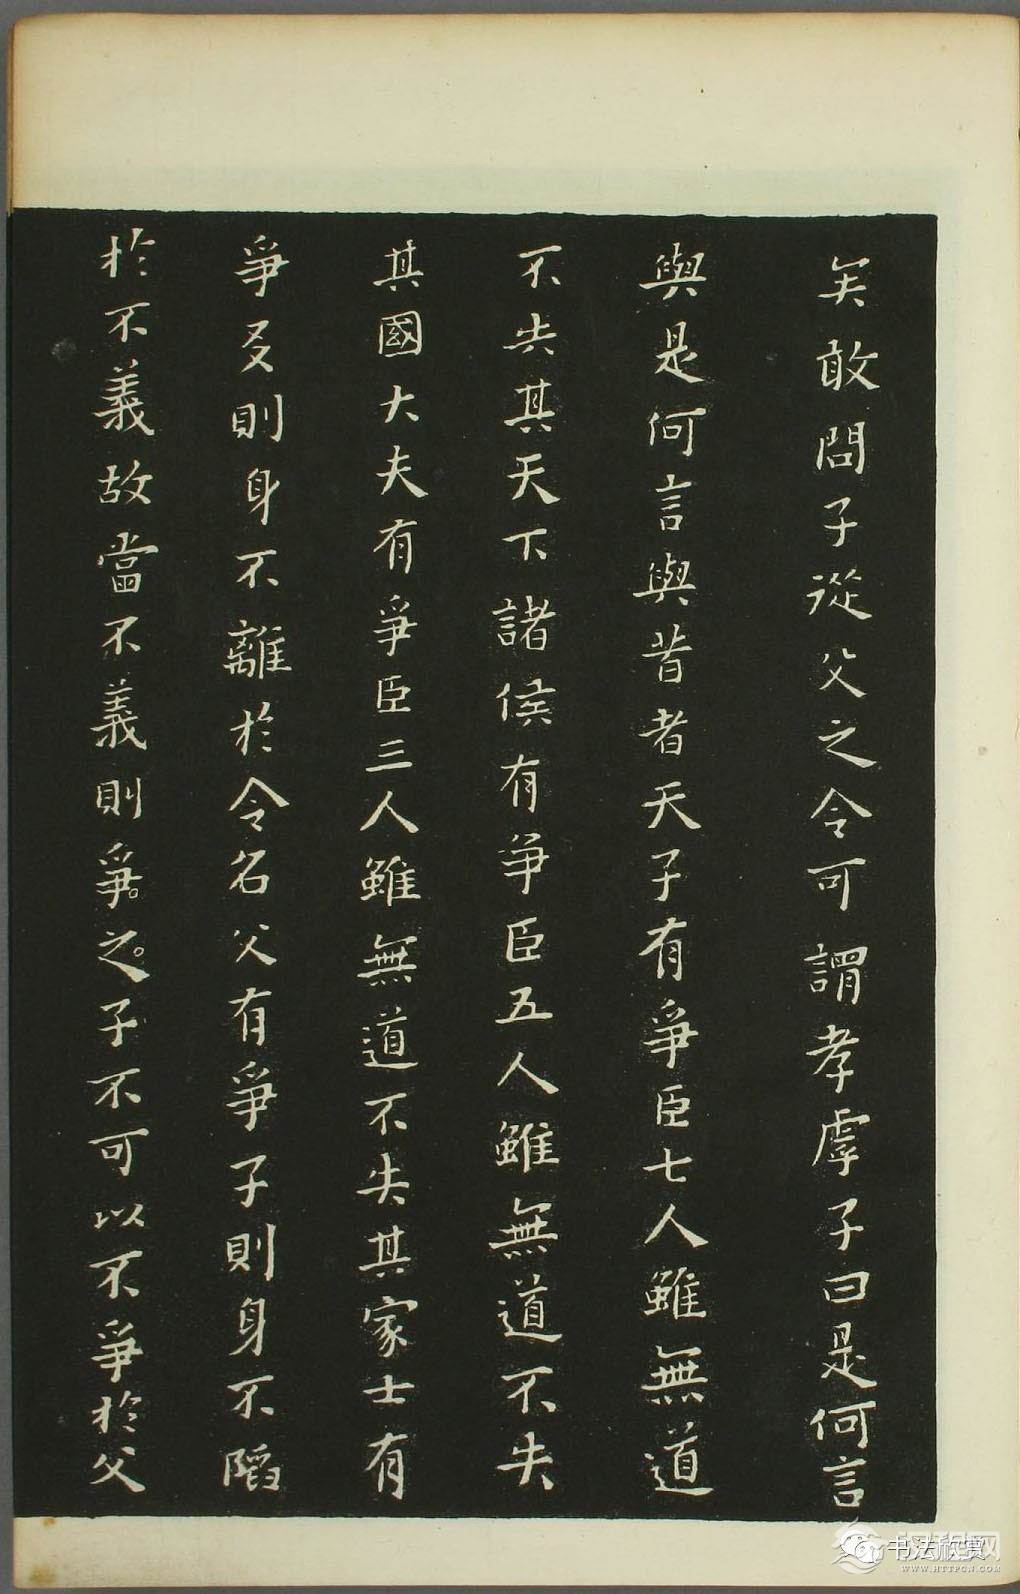 矣敢問子從父之令可謂孝虖子曰是何言
與是何言與昔者天子有爭臣七人雖無道
不失其天下諸侯有爭臣五人雖無道不失
其國大夫有爭臣三人雖無道不失其家士有
爭友則身不離於令名父有爭子則身不陷
於不義故當不義則爭之子不可以不爭於父
书法欣赏
WWW.HTTPCN.COM